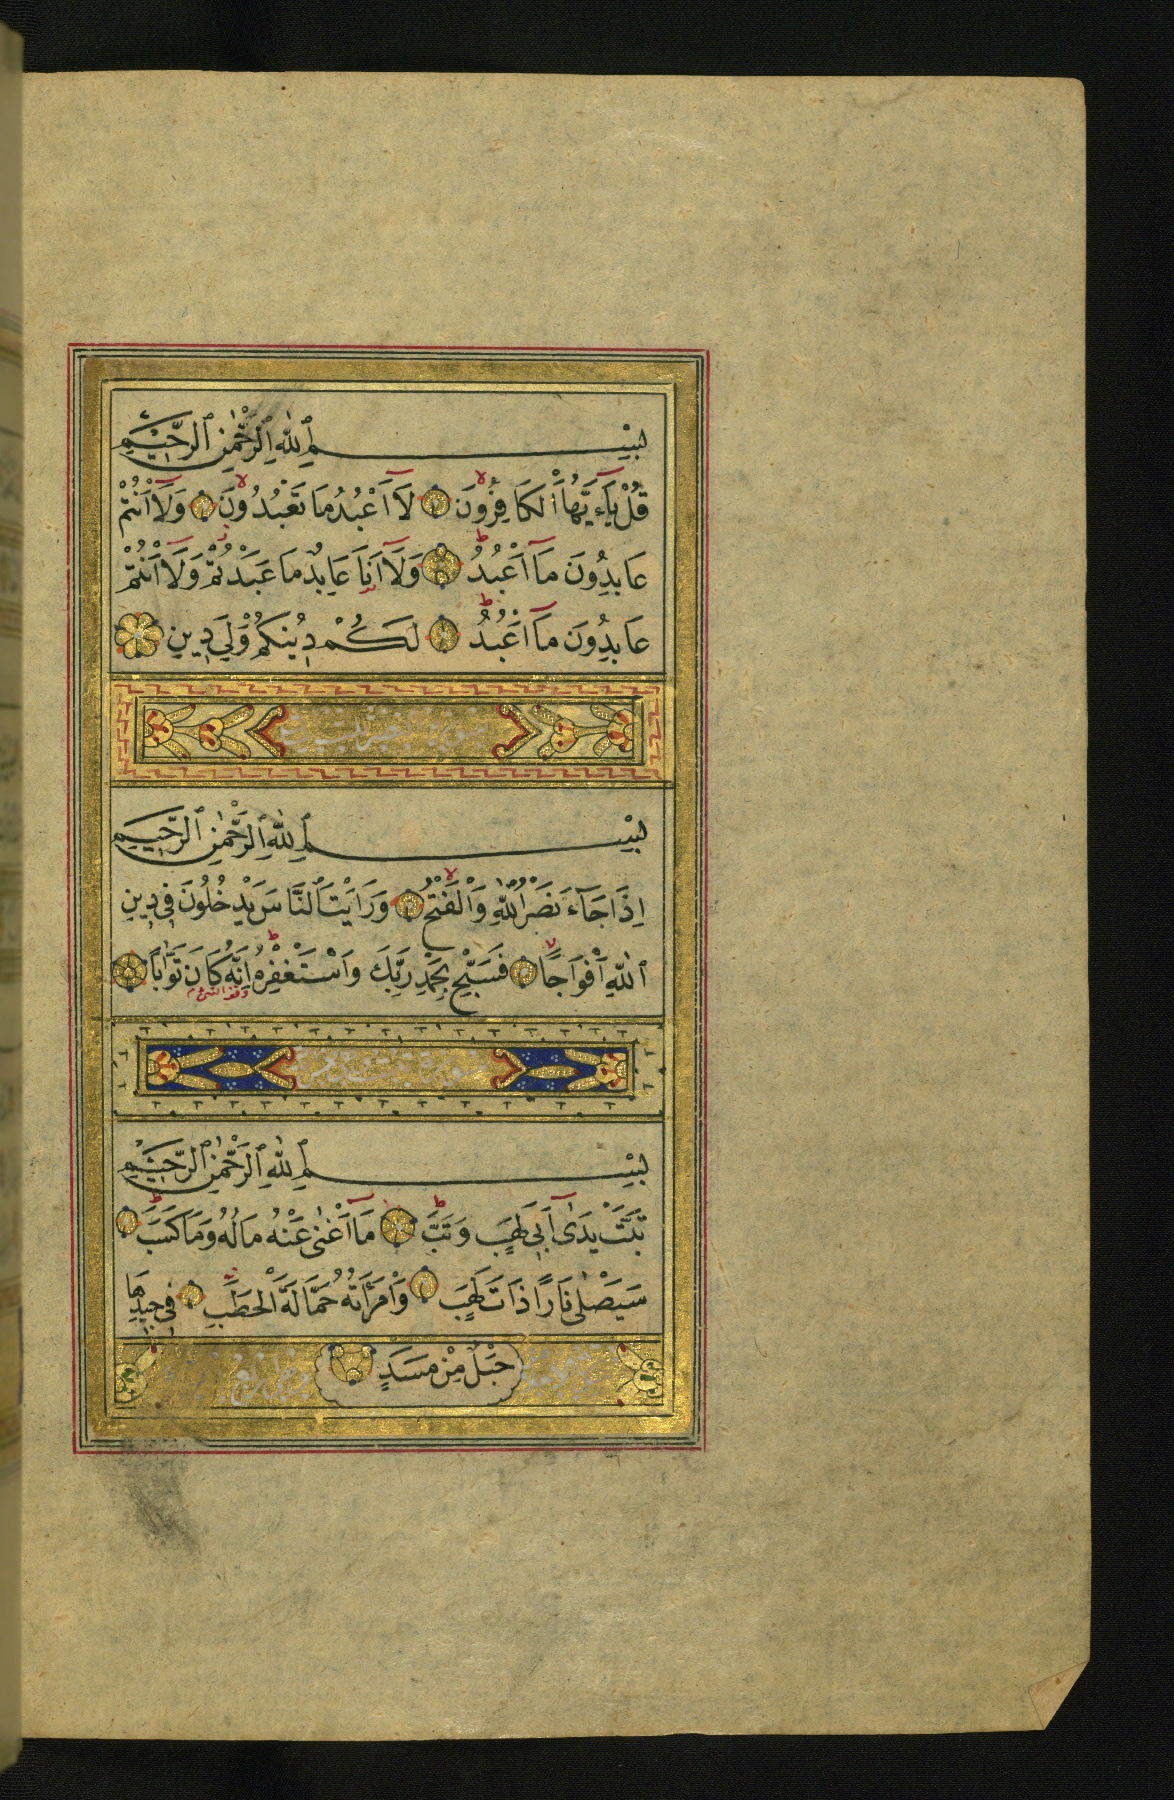 بِسْمِ ٱللّٰهِ ٱلرَّحْمٰنِ ٱلرَّحِيْمِ
قُلْ يَآءَيُّهَا ٱلْكَافِرُونَ لَآ اَعْبُدُ مَا تَعْبُدُونَ وَلَآ اَنْتُمْ
عَابِدُونَ مَآ اَعْبُدُ وَلَآ اَنَا عَابِدٌ مَا عَبَدْتُمْ وَلَآ اَنْتُمْ
عَابِدُونَ مَآ اَعْبُدُ لَكُمْ دِينُكُمْ وَلِيَ دِينِ
بِسْمِ ٱللّٰهِ ٱلرَّحْمٰنِ ٱلرَّحِيمِ
اِذَا جَآءَ نَصْرُ ٱللّٰهِ وَٱلْفَتْحُ وَرَاَيْتَ ٱلنَّاسَ يَدْخُلُونَ فِى دِينِ
ٱللّٰهِ اَفْوَاجًا فَسَبِّحْ بِحَمْدِ رَبِّكَ وَاسْتَغْفِرْهُ اِنَّهُ كَانَ تَوَّابًا
بِسْمِ ٱللّٰهِ ٱلرَّحْمٰنِ ٱلرَّحِيْمِ
تَبَّتْ يَدَىٰٓ اَبِى لَهَبٍ وَتَبَّ مَآ اَغْنٰى عَنْهُ مَالُهُ وَمَا كَسَبَ
سَيَصْلٰى نَارًا ذَاتَ لَهَبٍ وَامْرَاَتُهُ حَمَّالَةَ ٱلْحَطَبِ فِى جِيدِهَا
حَبْلٌ مِنْ مَسَدٍ